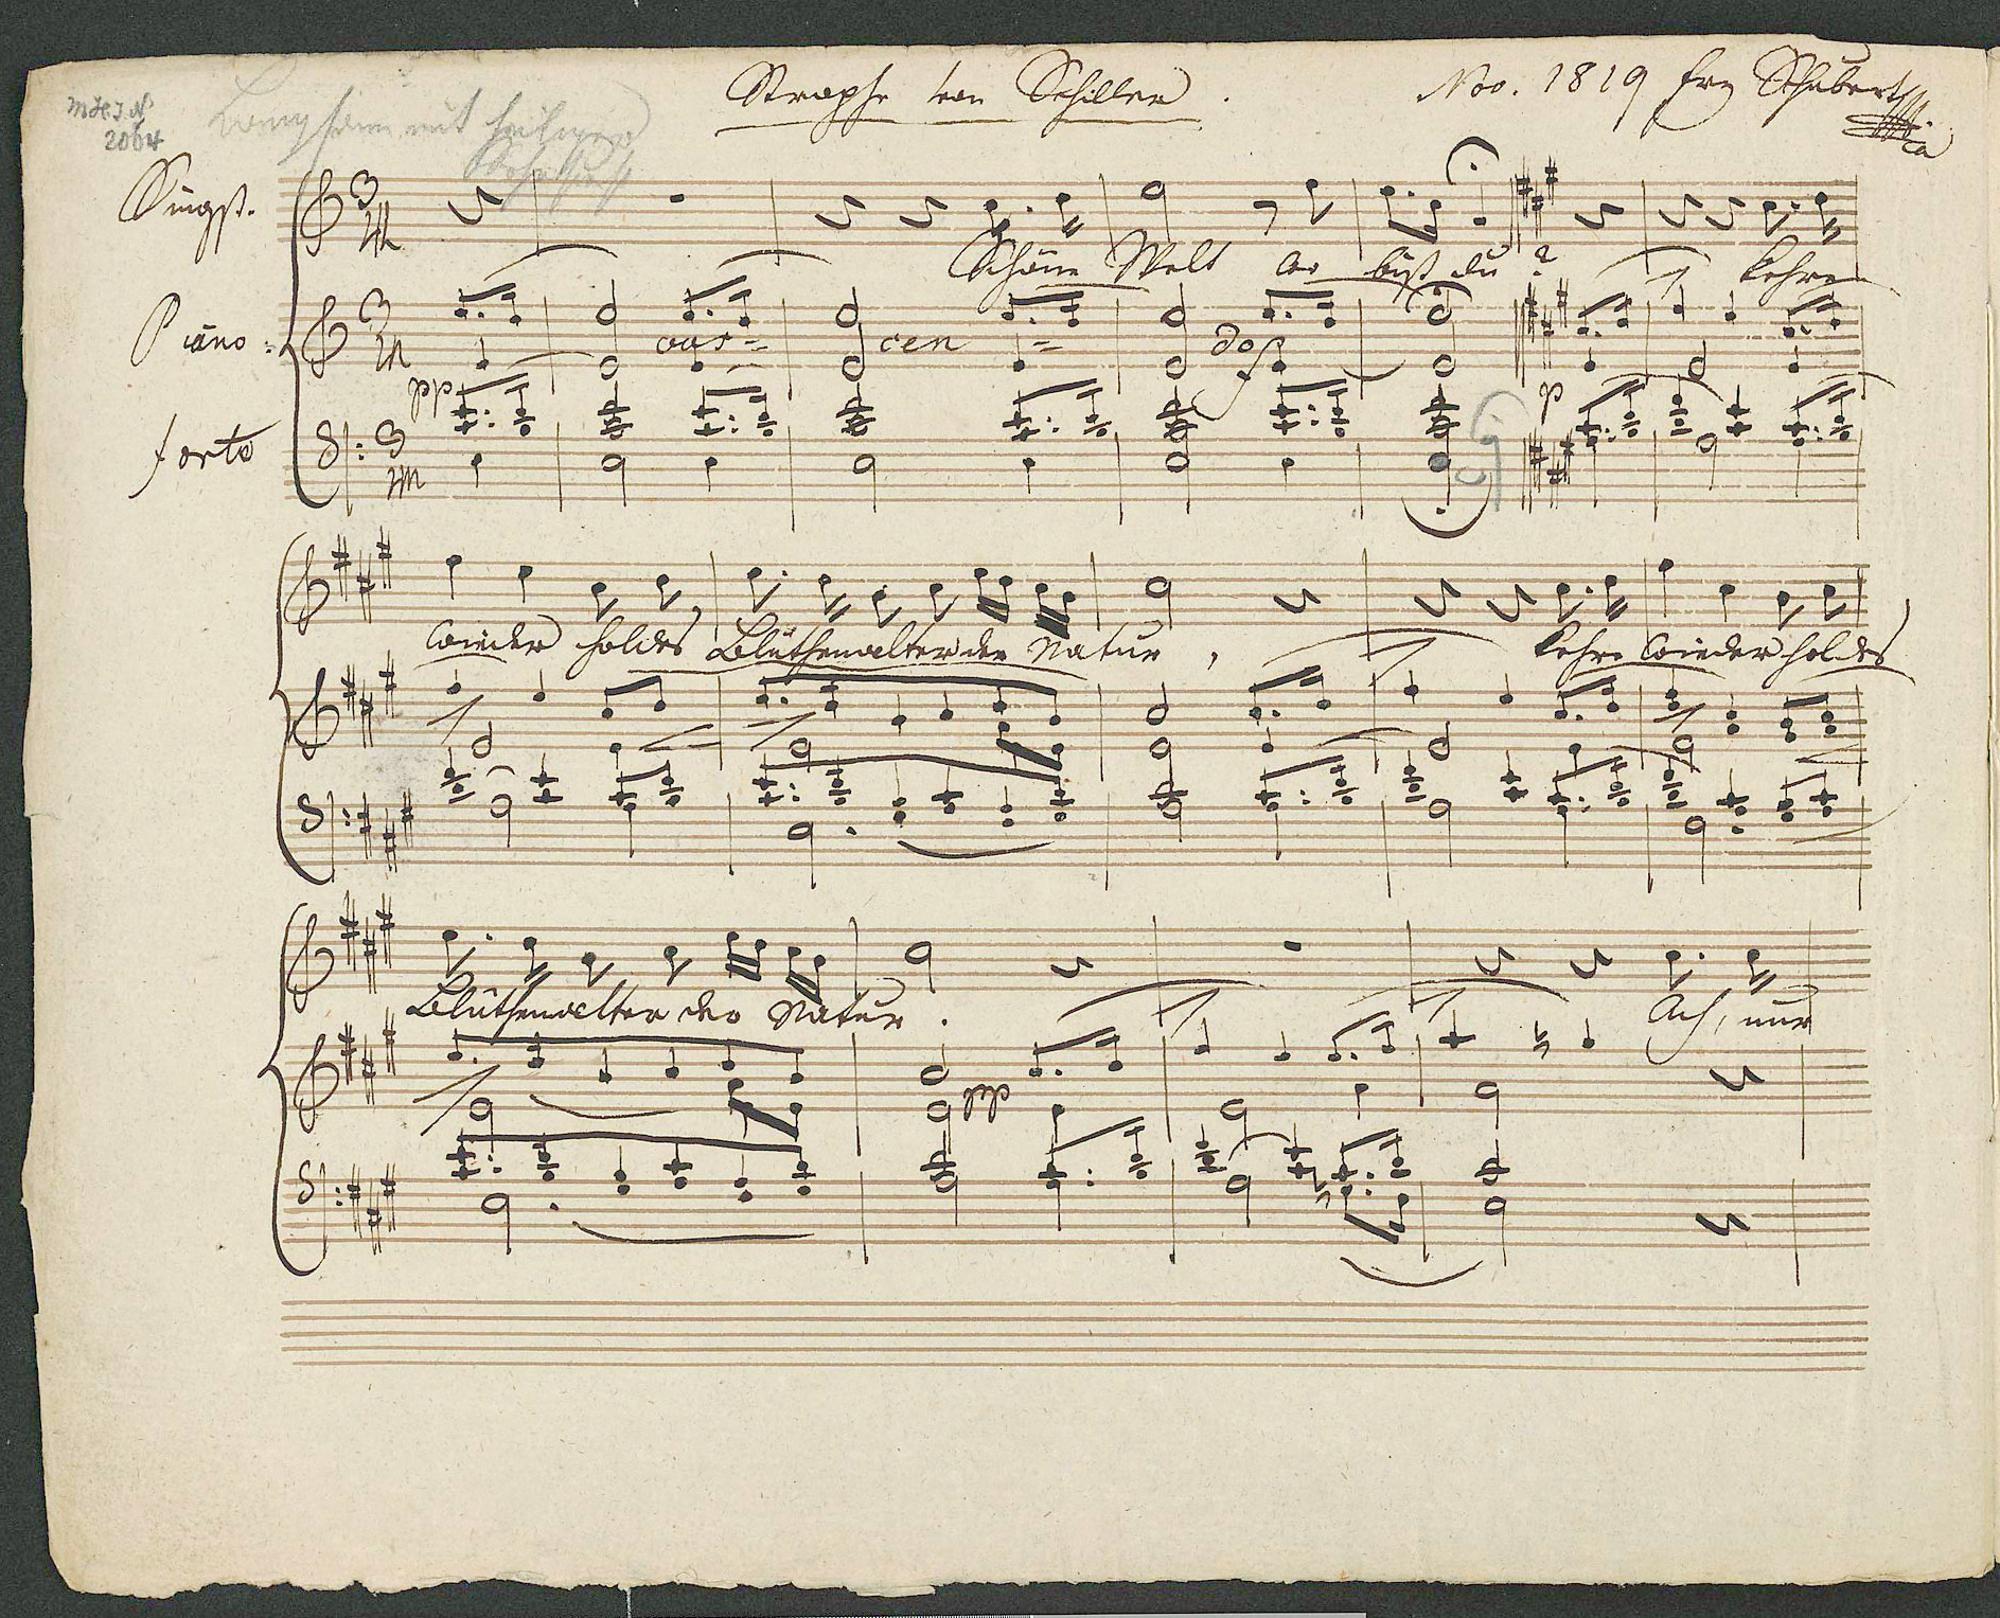 MH I N
2064
Langsam mit heiliger
Sehnsucht
Strophe von Schiller.
Nov. 1819 Frz Schubert
Singst.
Schöne Welt wo bist du? Kehre
Piano=
cres= cen = do f
pp p
forte
wieder holdes Blüthenalter der Natur, kehre wieder holdes
Blüthenalter der Natur. Ach, nur